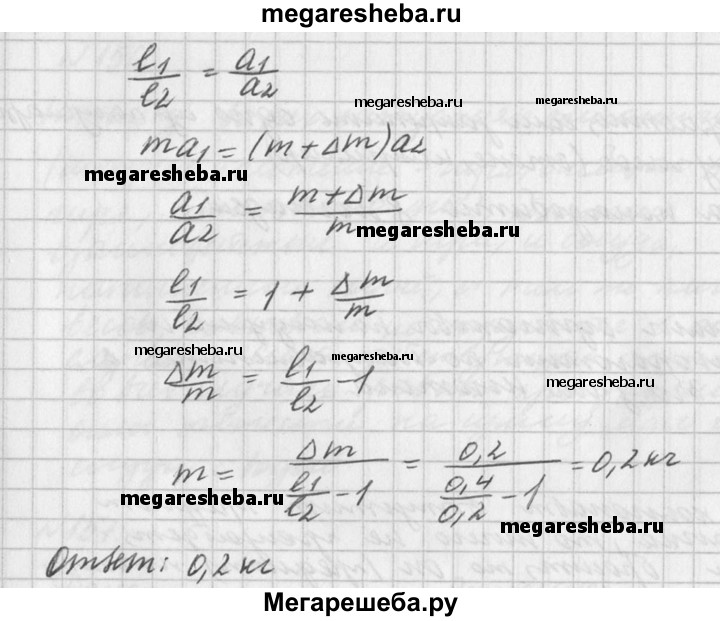 megaresheba.ru
l₁/l₂ = a₁/a₂
megaresheba.ru megaresheba.ru
ma₁ = (m + Δm)a₂
megaresheba.ru
a₁/a₂ = (m + Δm)/m
megaresheba.ru
l₁/l₂ = 1 + Δm/m
megaresheba.ru megaresheba.ru
Δm/m = l₁/l₂ - 1
megaresheba.ru
m = Δm/(l₁/l₂ - 1) = 0,2/(0,4/0,2 - 1) = 0,2 кг
megaresheba.ru
megaresheba.ru
Ответ: 0,2 кг
Мегарешеба.ру